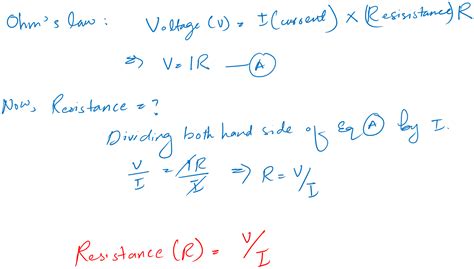 Ohm's law: Voltage (V) = I (current) × (Resisistance) R
⇒ V = IR — Ⓐ
Now, Resistance = ?
Dividing both hand side of Eq Ⓐ by I.
V/I = IR/I ⇒ R = V/I
Resistance (R) = V/I